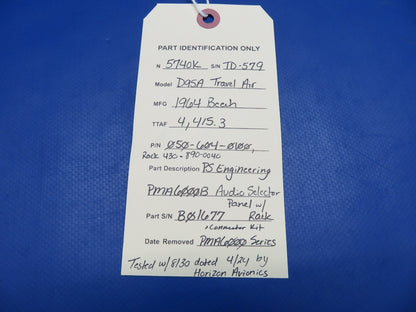 PART IDENTIFICATION ONLY
N 5740K S/N TD-579
Model D95A Travel Air
MFG 1964 Beech
TTAF 4,415.3
P/N 050-604-0100,
Rack 430-890-0040
Part Description PS Engineering
PMA6000B Audio Selector
Panel w/
Part S/N B01677 Rack
, connector kit
Date Removed PMA6000 Series
Tested w/8130 dated 4/24 by
Horizon Avionics